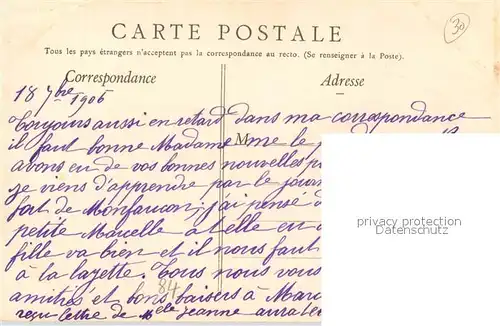 CARTE POSTALE
30
Tous les pays étrangers n'acceptent pas la correspondance au recto. (Se renseigner à la Poste).
Correspondance
Adresse
18 7bre 1906
Toujours aussi en retard dans ma correspondance
il faut bonne Madame me le
M
avons eu de vos bonnes nouvelles
je viens d'apprendre par le
fort de Monfaucon; j'ai pensé
petite Marcelle a-t-elle eu
fille va bien et il nous faut
à la layette. Tous nous vous
84
amitiés et bons baisers à
reçu lettre de Melle Jeanne
privacy protection
Datenschutz